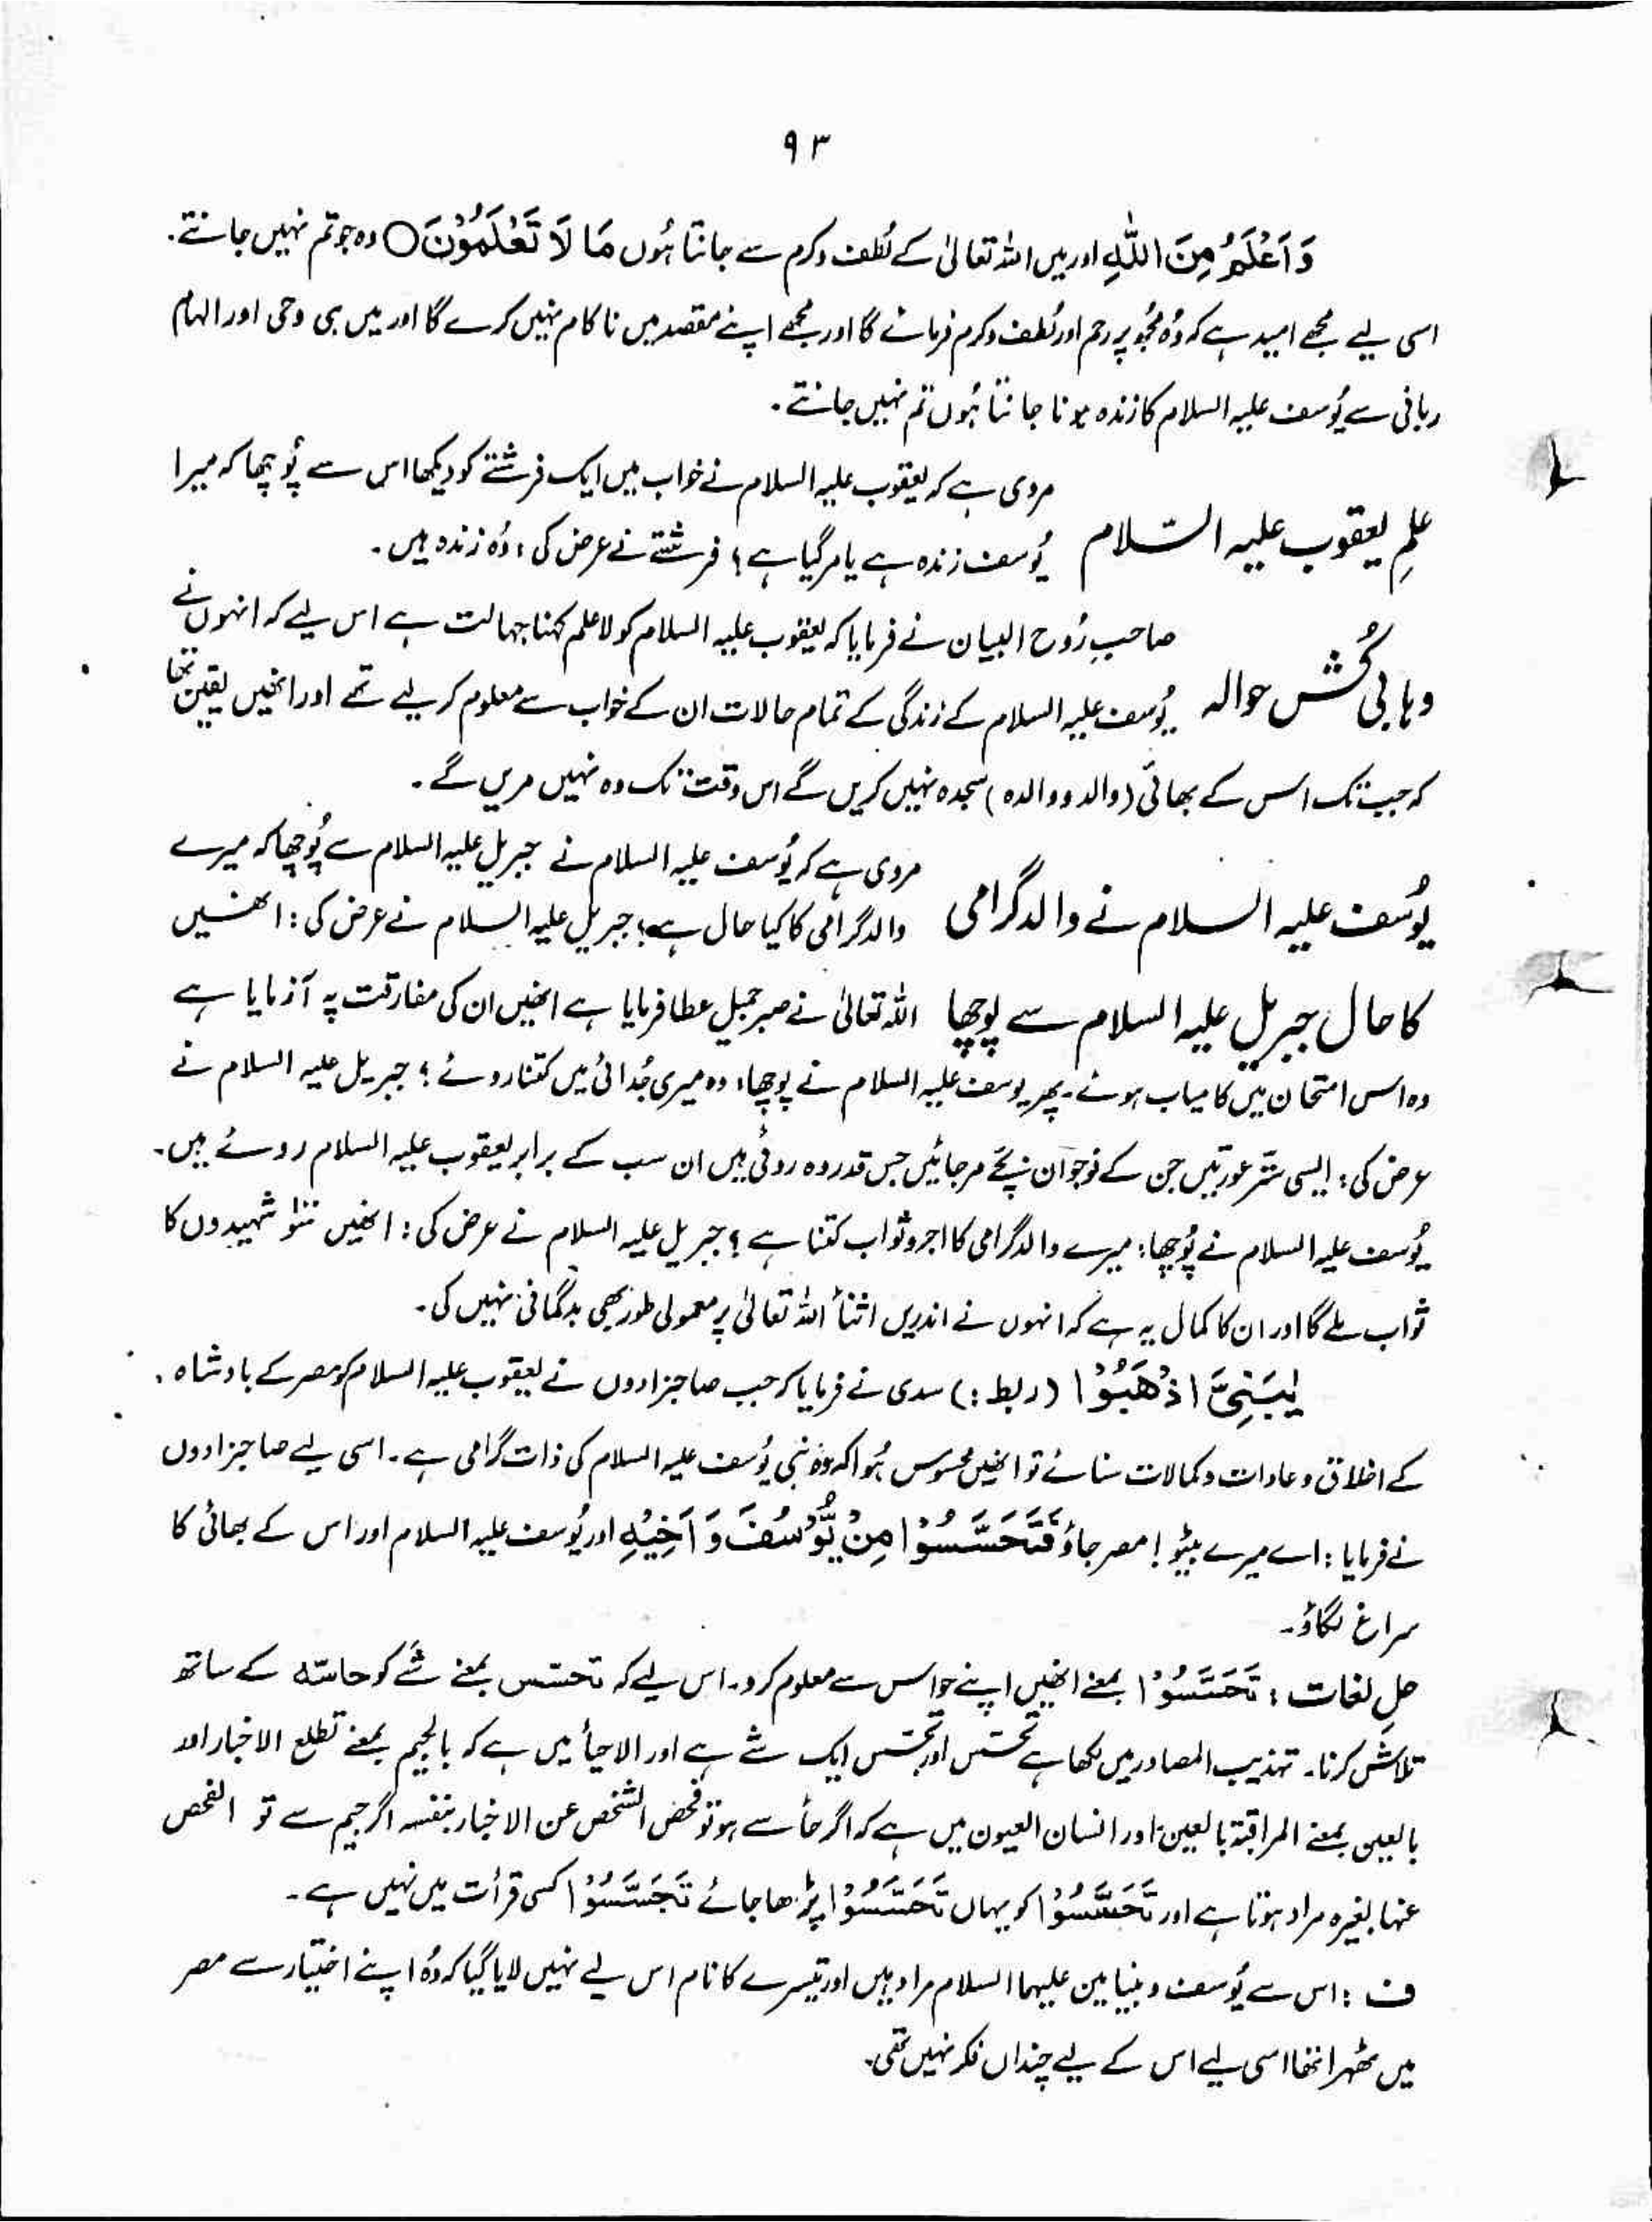 ۹۳
وَاَعْلَمُ مِنَ اللّٰهِ اور میں اللہ تعالیٰ کے لُطف و کرم سے جانتا ہُوں مَا لَا تَعْلَمُوْنَ○ وہ جو تم نہیں جانتے۔
اسی لیے مجھے امید ہے کہ وُہ مجھ پر رحم اور لُطف و کرم فرمائے گا اور مجھے اپنے مقصد میں ناکام نہیں کرے گا اور میں ہی وحی اور الہام
ربانی سے یُوسف علیہ السلام کا زندہ ہونا جانتا ہُوں تم نہیں جانتے۔
علمِ یعقوب علیہ السّلام
مروی ہے کہ یعقوب علیہ السلام نے خواب میں ایک فرشتے کو دیکھا اس سے پُوچھا کہ میرا
یُوسف زندہ ہے یا مر گیا ہے؟ فرشتے نے عرض کی: وُہ زندہ ہیں۔
وہابی کُش حوالہ
صاحبِ رُوح البیان نے فرمایا کہ یعقوب علیہ السلام کو لاعلم کہنا جہالت ہے اس لیے کہ انہوں نے
یُوسف علیہ السلام کے زندگی کے تمام حالات ان کے خواب سے معلوم کر لیے تھے اور انھیں یقین تھا
کہ جب تک اس کے بھائی (والد و والدہ) سجدہ نہیں کریں گے اس وقت تک وہ نہیں مریں گے۔
یُوسف علیہ السلام نے والد گرامی
کا حال جبریل علیہ السلام سے پوچھا
مروی ہے کہ یُوسف علیہ السلام نے جبریل علیہ السلام سے پُوچھا کہ میرے
والد گرامی کا کیا حال ہے؟ جبریل علیہ السلام نے عرض کی: انھیں
اللہ تعالیٰ نے صبر جمیل عطا فرمایا ہے انھیں ان کی مفارقت پہ آزمایا ہے
وہ اس امتحان میں کامیاب ہوئے۔ پھر یوسف علیہ السلام نے پوچھا: وہ میری جُدائی میں کتنا روئے؟ جبریل علیہ السلام نے
عرض کی: ایسی ستّر عورتیں جن کے نوجوان بچّے مر جائیں جس قدر وہ روئی ہیں ان سب کے برابر یعقوب علیہ السلام روئے ہیں۔
یُوسف علیہ السلام نے پُوچھا: میرے والد گرامی کا اجر و ثواب کتنا ہے؟ جبریل علیہ السلام نے عرض کی: انھیں سَو شہیدوں کا
ثواب ملے گا اور ان کا کمال یہ ہے کہ انہوں نے اندریں اثنأ اللہ تعالیٰ پر معمولی طور بھی بدگمانی نہیں کی۔
یٰبَنِیَّ اذْهَبُوْا (ربط:) سدی نے فرمایا کہ جب صاحبزادوں نے یعقوب علیہ السلام کو مصر کے بادشاہ
کے اخلاق و عادات و کمالات سنائے تو انھیں محسوس ہُوا کہ وہ نبی یُوسف علیہ السلام کی ذات گرامی ہے۔ اسی لیے صاحبزادوں
نے فرمایا: اے میرے بیٹو! مصر جاؤ فَتَحَسَّسُوْا مِنْ یُّوْسُفَ وَ اَخِیْهِ اور یُوسف علیہ السلام اور اس کے بھائی کا
سراغ لگاؤ۔
حلِ لغات: تَحَسَّسُوْا بمعنے انھیں اپنے حواس سے معلوم کرو۔ اس لیے کہ تحسّس بمعنے شے کو حاسّہ کے ساتھ
تلاش کرنا۔ تہذیب المصادر میں لکھا ہے تحسّس اور تجسّس ایک شے ہے اور الاحیأ میں ہے کہ بالجیم بمعنے تطلع الاخبار اور
بالعین بمعنے المراقبۃ بالعین اور انسان العیون میں ہے کہ اگر حأ سے ہو تو فحص الشخص عن الاخبار بنفسہ اگر جیم سے تو الفحص
عنہا بغیرہ مراد ہوتا ہے اور تَحَسَّسُوْا کو یہاں تَحَسَّسُوْا پڑھا جائے تَجَسَّسُوْا کسی قرأت میں نہیں ہے۔
ف: اس سے یُوسف و بنیامین علیہما السلام مراد ہیں اور تیسرے کا نام اس لیے نہیں لایا گیا کہ وُہ اپنے اختیار سے مصر
میں ٹھہرا تھا اسی لیے اس کے لیے چنداں فکر نہیں تھی۔